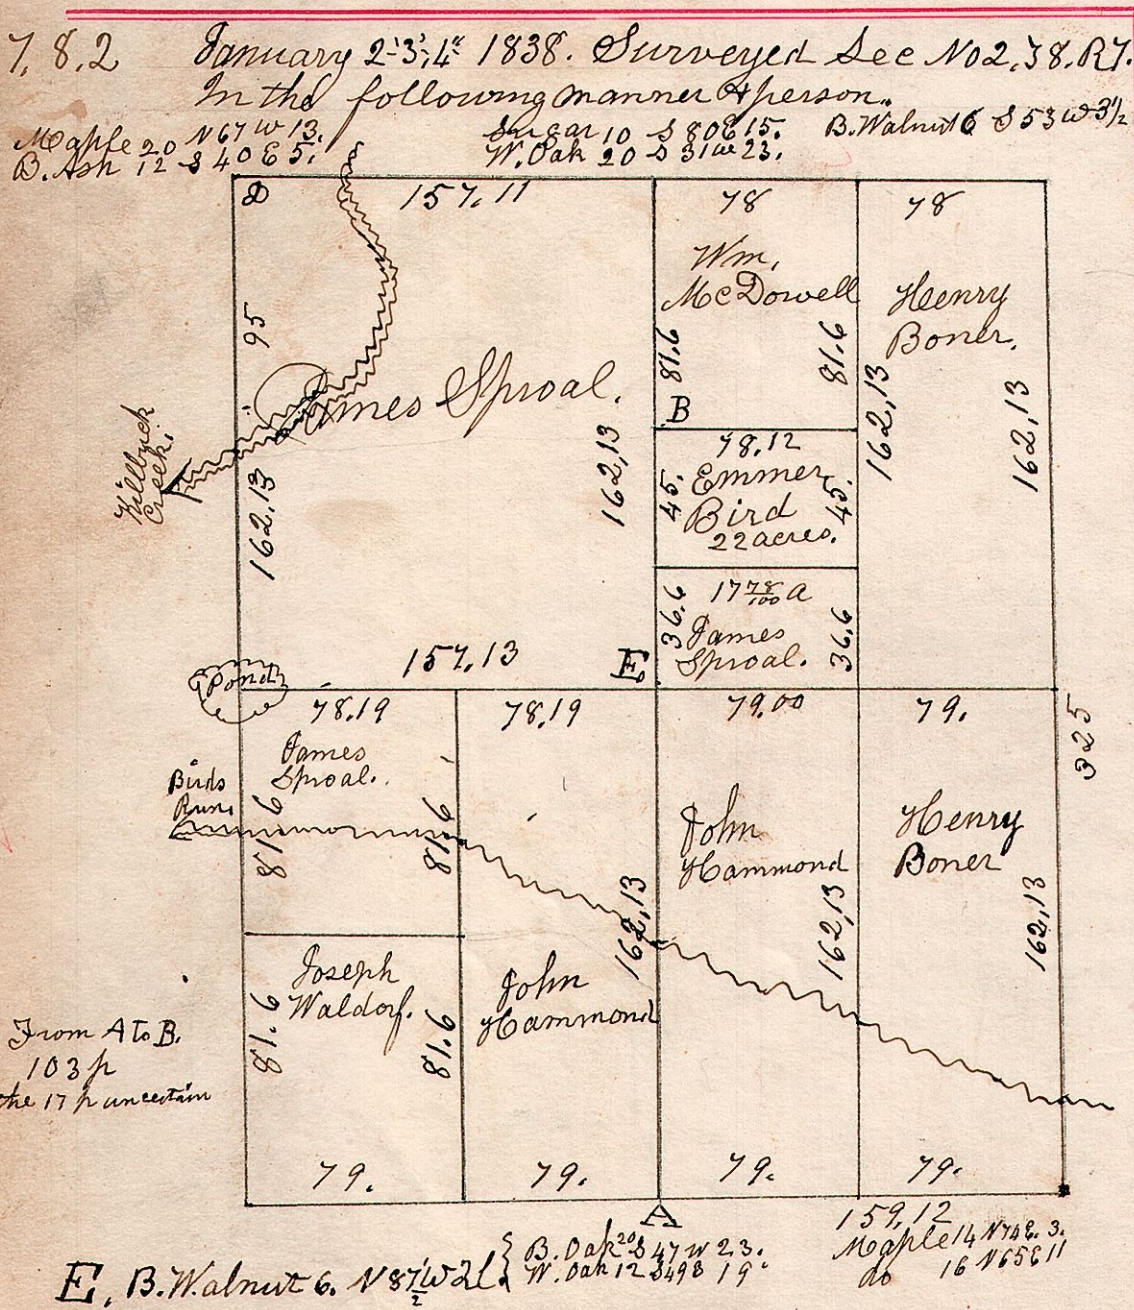 7. 8. 2 January 2-3-4" 1838. Surveyed Sec No 2, T8. R7.
In the following manner & person.
Maple 20 N67W13.
B. Ash 12 S40E5.
Sugar 10 S80E15.
W. Oak 20 S31W23.
B. Walnut 6 S53W3½
D
157,11
78
78
Wm.
McDowell
Henry
Boner.
95
81.6
81.6
162,13
162,13
James Sproal.
B
Killbuck
Creek.
162,13
162,13
78,12
45.
Emmer
Bird
22 acres.
45.
17 78/100 A
36.6
James
Sproal.
36.6
157,13
E.
Pond
78,19
78,19
79.00
79.
325
James
Sproal.
Birds
Run.
81.6
81.6
John
Hammond
Henry
Boner
162,13
162,13
162,13
Joseph
Waldorf.
John
Hammond
81.6
81.6
From A to B.
103 p
the 17 p uncertain
79.
79.
79.
79.
A
159,12
Maple 14 N74E. 3.
do 16 N65E 11
B. Oak 20 S47W23.
W. Oak 12 S49E 19
E, B. Walnut 6. N87½W2L